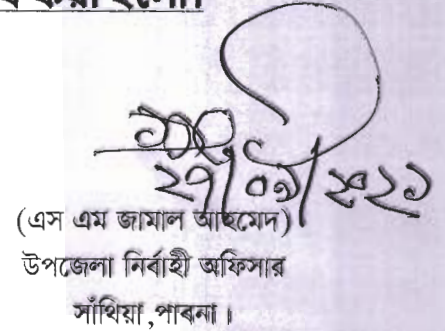 করা হলো।
২৭/০৯/২০২১
(এস এম জামাল আহমেদ)
উপজেলা নির্বাহী অফিসার
সাঁথিয়া ,পাবনা ।